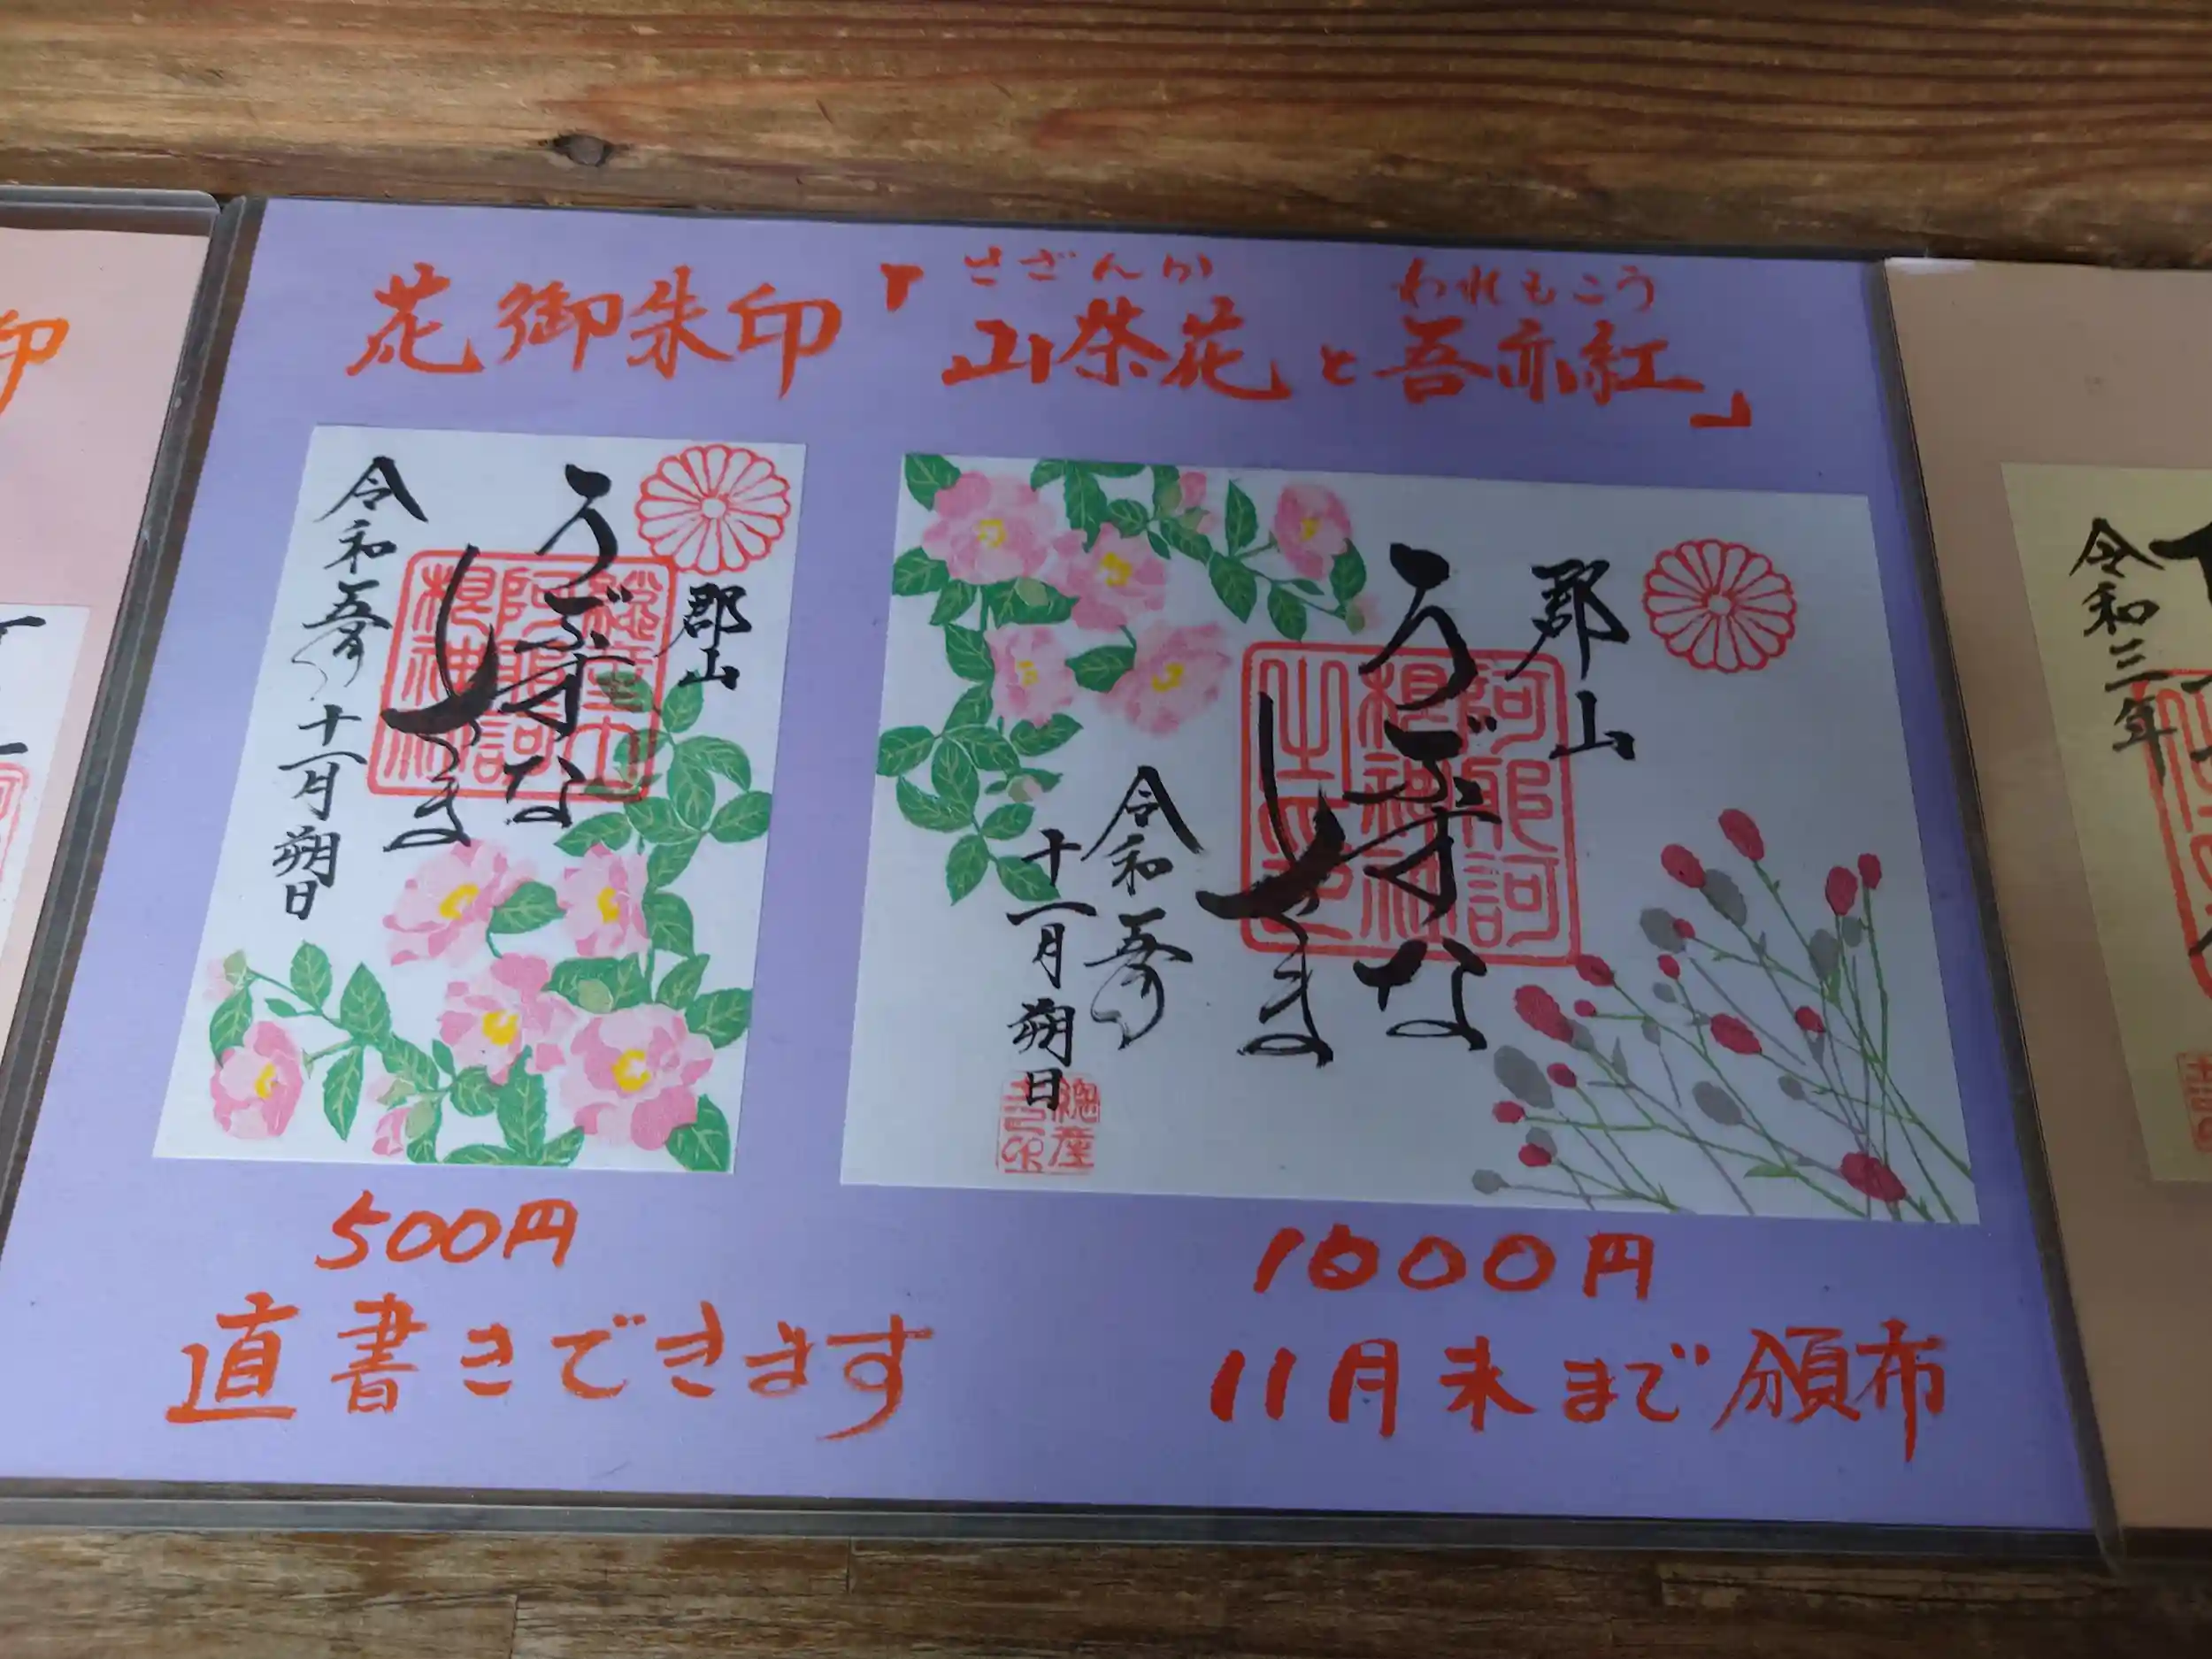 さざんか われもこう
花御朱印「山茶花と吾亦紅」
郡山
うぶすな
しさま
令和五年
十一月朔日
500円
直書きできます
郡山
うぶすな
しさま
令和五年
十一月朔日
阿耶訶
根神社
之印
1000円
11月末まで頒布
令和三年
印